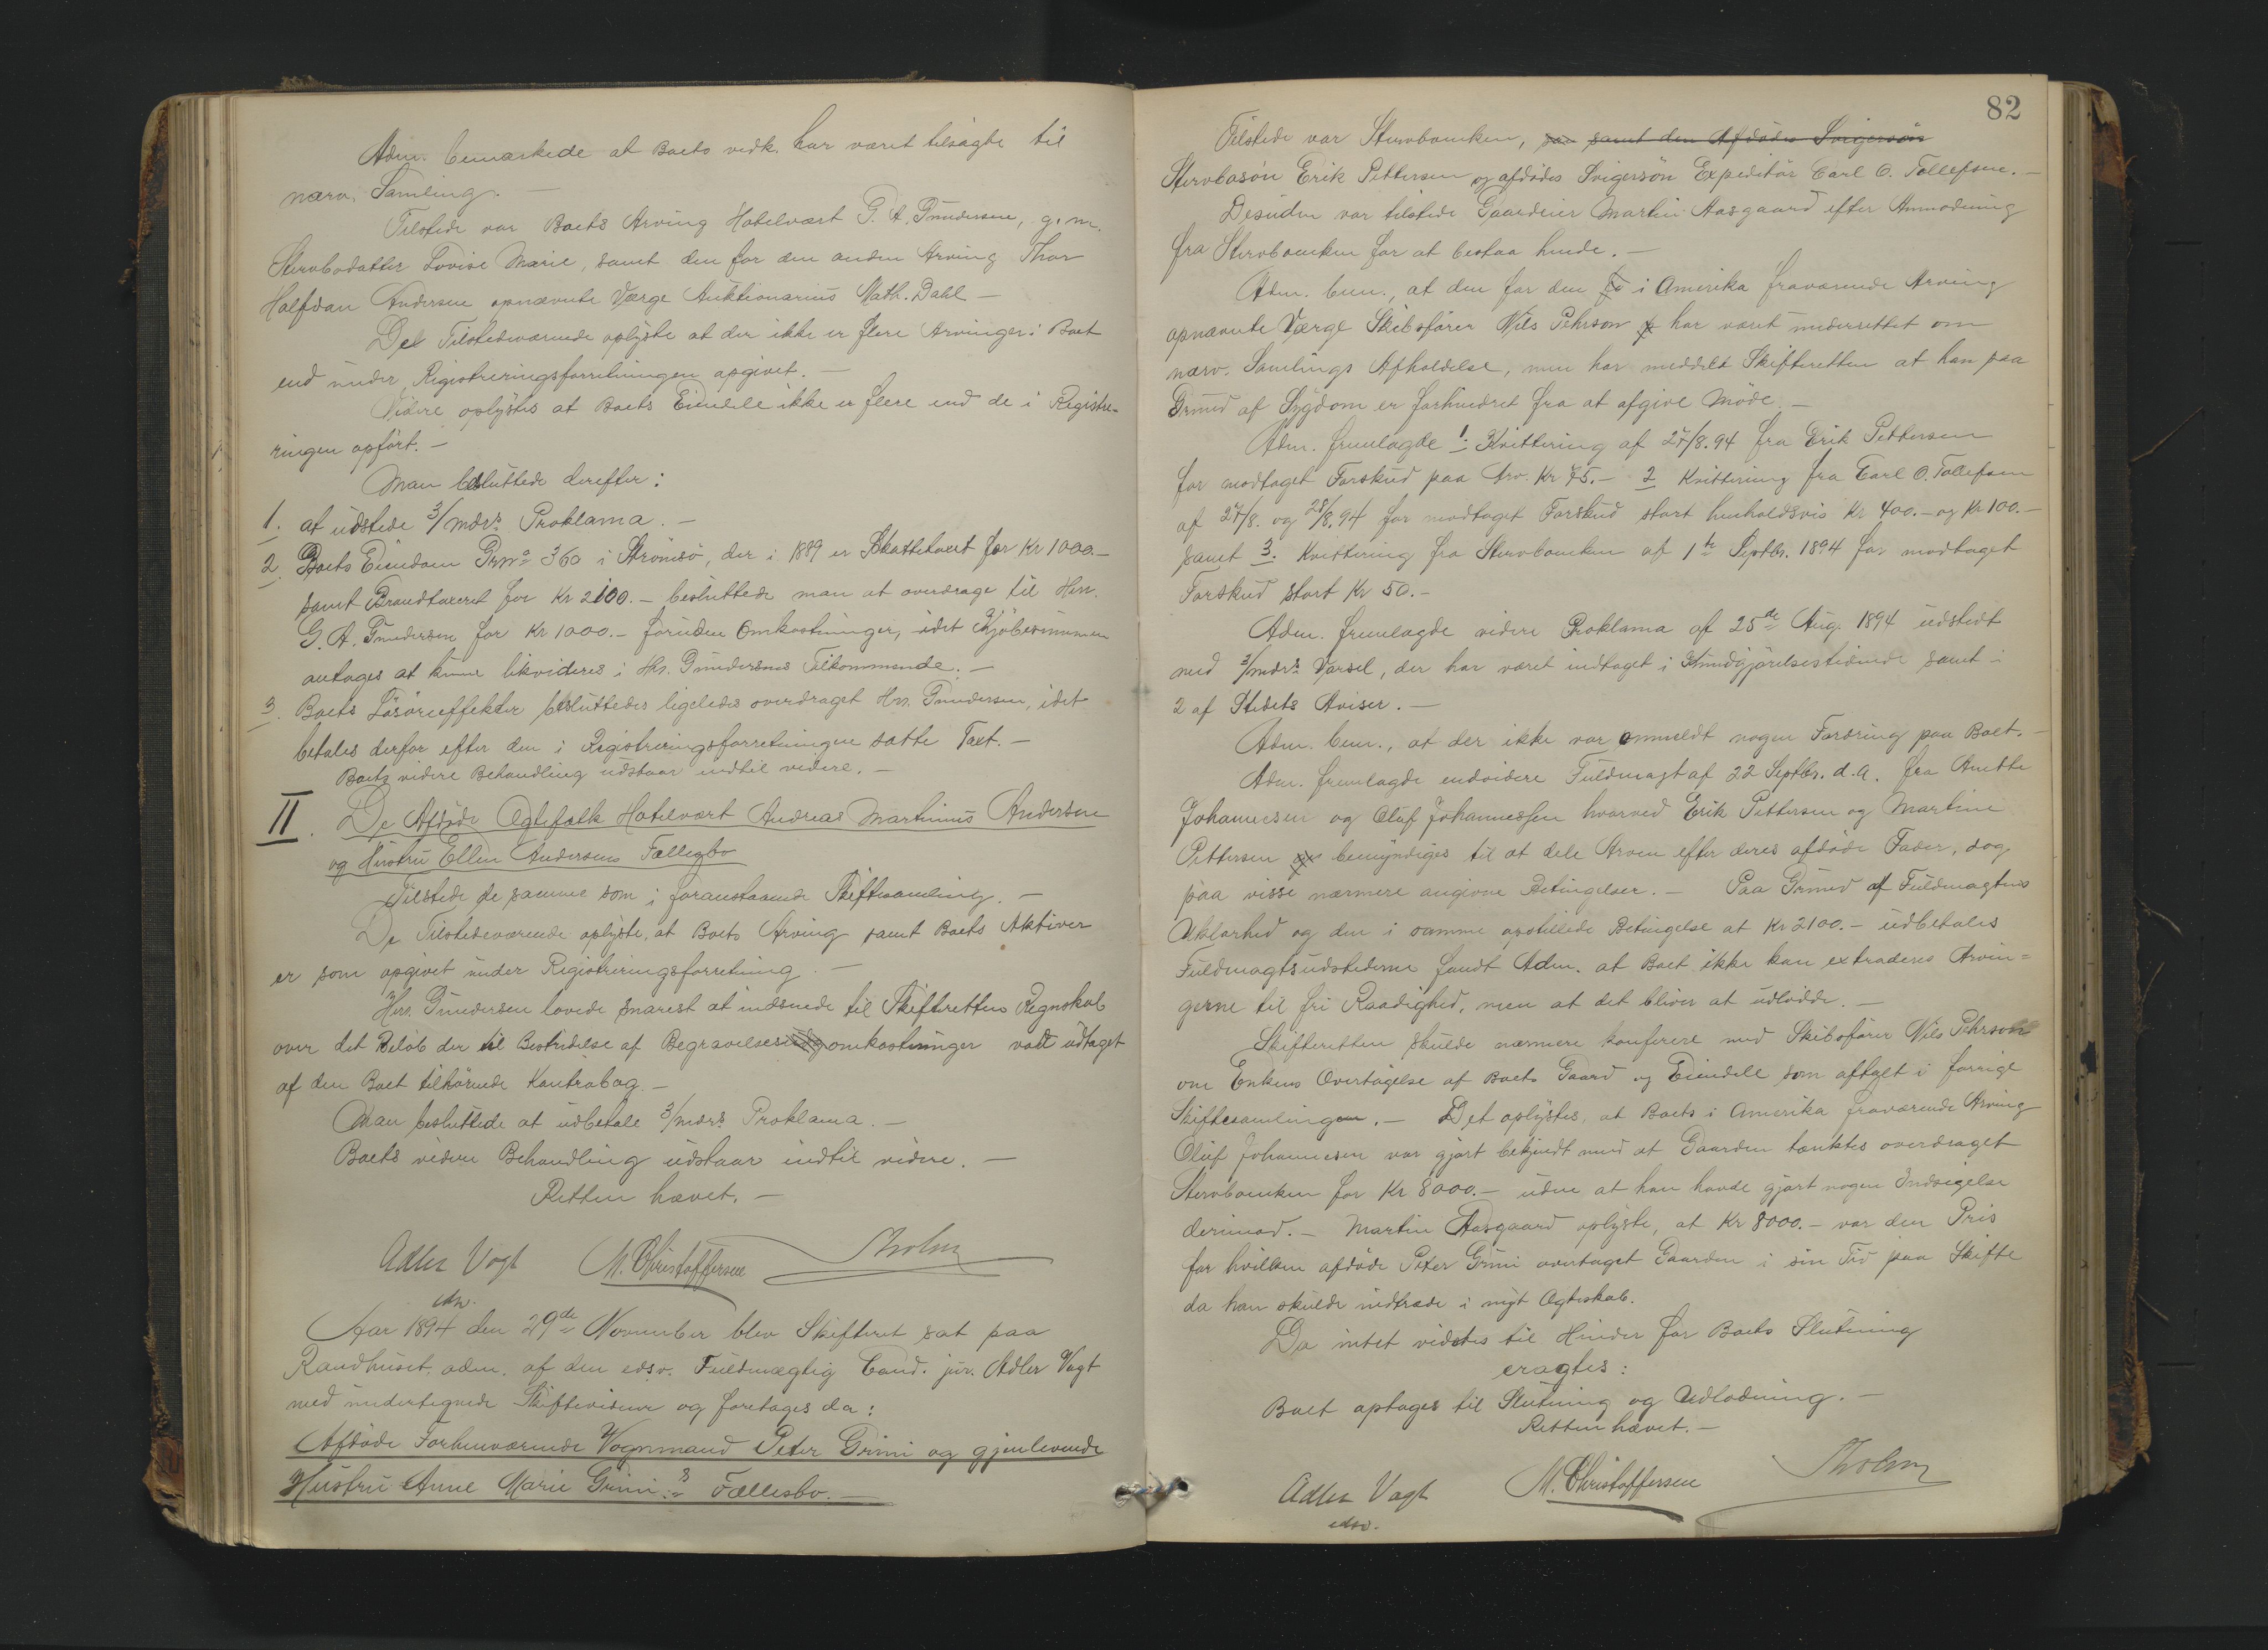 Adm. bemærkede at Boets vedk. har været tilsagte til
nærv. Samling. —
Tilstede var Boets Arving Hotelvært G. A. Gundersen, g. m.
Stervbodatter Lovise Marie, samt den for den anden Arving Thor
Halfdan Andersen opnævnte Værge Auktionarius Math. Dahl —
De Tilstedeværende oplyste at der ikke er flere Arvinger i Boet
end under Registreringsforretningen opgivet. —
Videre oplystes at Boets Eiendele ikke er flere end de i Registre-
ringen opført. —
Man besluttede derefter:
1. at udstede 3/mdrs. Proklama. —
2. Boets Eiendom Grno 360 i Strømsø, der i 1889 er Skattetaxert for Kr 1000.—
samt Brandtaxeret for Kr 2100.— besluttede man at overdrage til Hrr.
G. A. Gundersen for Kr 1000.— foruden Omkostninger, idet Kjøbesummen
antages at kunne likvideres i Hr. Gundersens Tilkommende. —
3. Boets Løsøreeffekter besluttedes ligeledes overdraget Hrr. Gundersen, idet
betales derfor efter den i Registreringsforretningen satte Taxt. —
Boets videre Behandling udstaar indtil videre. —
II. De Afdøde Ægtefolk Hotelvært Andreas Martinius Andersen
og Hustru Ellen Andersens Fællesbo
Tilstede de samme som i foranstaaende Skiftesamling. —
De Tilstedeværende oplyste, at Boets Arving samt Boets Aktiver
er som opgivet under Registreringsforretning. —
Hrr. Gundersen lovede snarest at indsende til Skifteretten Regnskab
over det Beløb der til Bestridelse af Begravelsesomkostninger var udtaget
af den Boet tilhørende Kontrabog. —
Man besluttede at udbetale 3/mdrs. Proklama. —
Boets videre Behandling udstaar indtil videre. —
Retten hævet. —
Adler Vogt M. Christoffersen Tholm
edsv.
Aar 1894 den 29de November blev Skifteret sat paa
Raadhuset, adm. af den edsv. Fuldmægtig Cand. jur. Adler Vogt
med undertegnede Skiftevidner og foretages da:
Afdøde Forhenværende Vognmand Peter Grini og gjenlevende
Hustru Anne Marie Grinis Fællesbo. —
82
Tilstede var Stervboenken, samt den Afdødes Svigersøn
Stervbosøn Erik Pettersen og afdødes Svigersøn Expeditør Carl O. Tollefsen. —
Desuden var tilstede Gaardeier Martin Aasgaard efter Anmodning
fra Stervboenken for at bistaa hende. —
Adm. bem., at den for den i Amerika fraværende Arving
opnævnte Værge Skibsfører Nils Pehrson har været underrettet om
nærv. Samlings Afholdelse, men har meddelt Skifteretten at han paa
Grund af Sygdom er forhindret fra at afgive Møde. —
Adm. fremlagde 1: Kvittering af 27/8.94 fra Erik Pettersen
for modtaget Forskud paa Arv. Kr 75.— 2 Kvittering fra Carl O. Tollefsen
af 27/8. og 28/8.94 for modtaget Forskud stort henholdsvis Kr 400.— og Kr 100.—
samt 3. Kvittering fra Stervboenken af 1te Septbr. 1894 for modtaget
Forskud stort Kr 50.—
Adm. fremlagde videre Proklama af 25de Aug. 1894 udstedt
med 3/mdrs Varsel, der har været indtaget i Kundgjørelsestidende samt i
2 af Stedets Aviser. —
Adm. bem., at der ikke var anmeldt nogen Fordring paa Boet. —
Adm. fremlagde endvidere Fuldmagt af 22 Septbr. d.A. fra Anette
Johannesen og Oluf Johannessen hvorved Erik Pettersen og Martine
Pettersen bemyndiges til at dele Arven efter deres afdøde Fader, dog
paa visse nærmere angivne Betingelser. — Paa Grund af Fuldmagtens
Uklarhed og den i samme opstillede Betingelse at Kr 2100.— udbetales
Fuldmagtsudstederne fandt Adm. at Boet ikke kan extraderes Arvin=
gerne til fri Raadighed, men at det bliver at udlodde. —
Skifteretten skulde nærmere konferere med Skibsfører Nils Pehrson
om Enkens Overtagelse af Boets Gaard og Eiendele som aftalt i forrige
Skiftesamlingen. — Det oplystes, at Boets i Amerika fraværende Arving
Oluf Johannesen var gjort bekjendt med at Gaarden tænktes overdraget
Stervboenken for Kr 8000.— uden at han havde gjort nogen Indsigelse
derimod. — Martin Aasgaard oplyste, at Kr 8000.— var den Pris
for hvilken afdøde Peter Grini overtaget Gaarden i sin Tid paa Skifte
da han skulde indtræde i nyt Ægteskab.
Da intet vidstes til Hinder for Boets Slutning
eragtes:
Boet optages til Slutning og Udlodning. —
Retten hævet. —
Adler Vogt M. Christoffersen Tholm
edsv.